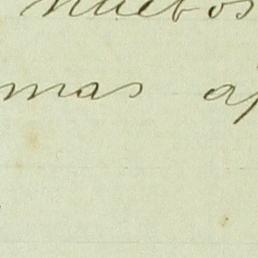 nuebos
mas